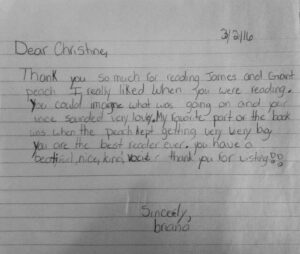 3/2/16
Dear Christine,
Thank you so much for reading James and Giant
peach I really liked when you were reading.
You could imagine what was going on and your
voice sounded very lovly. My favorite part of the book
was when the peach kept getting very very big
you are the best reader ever. you have a
nice, kind, thank you for visting
Sincerly,
briana